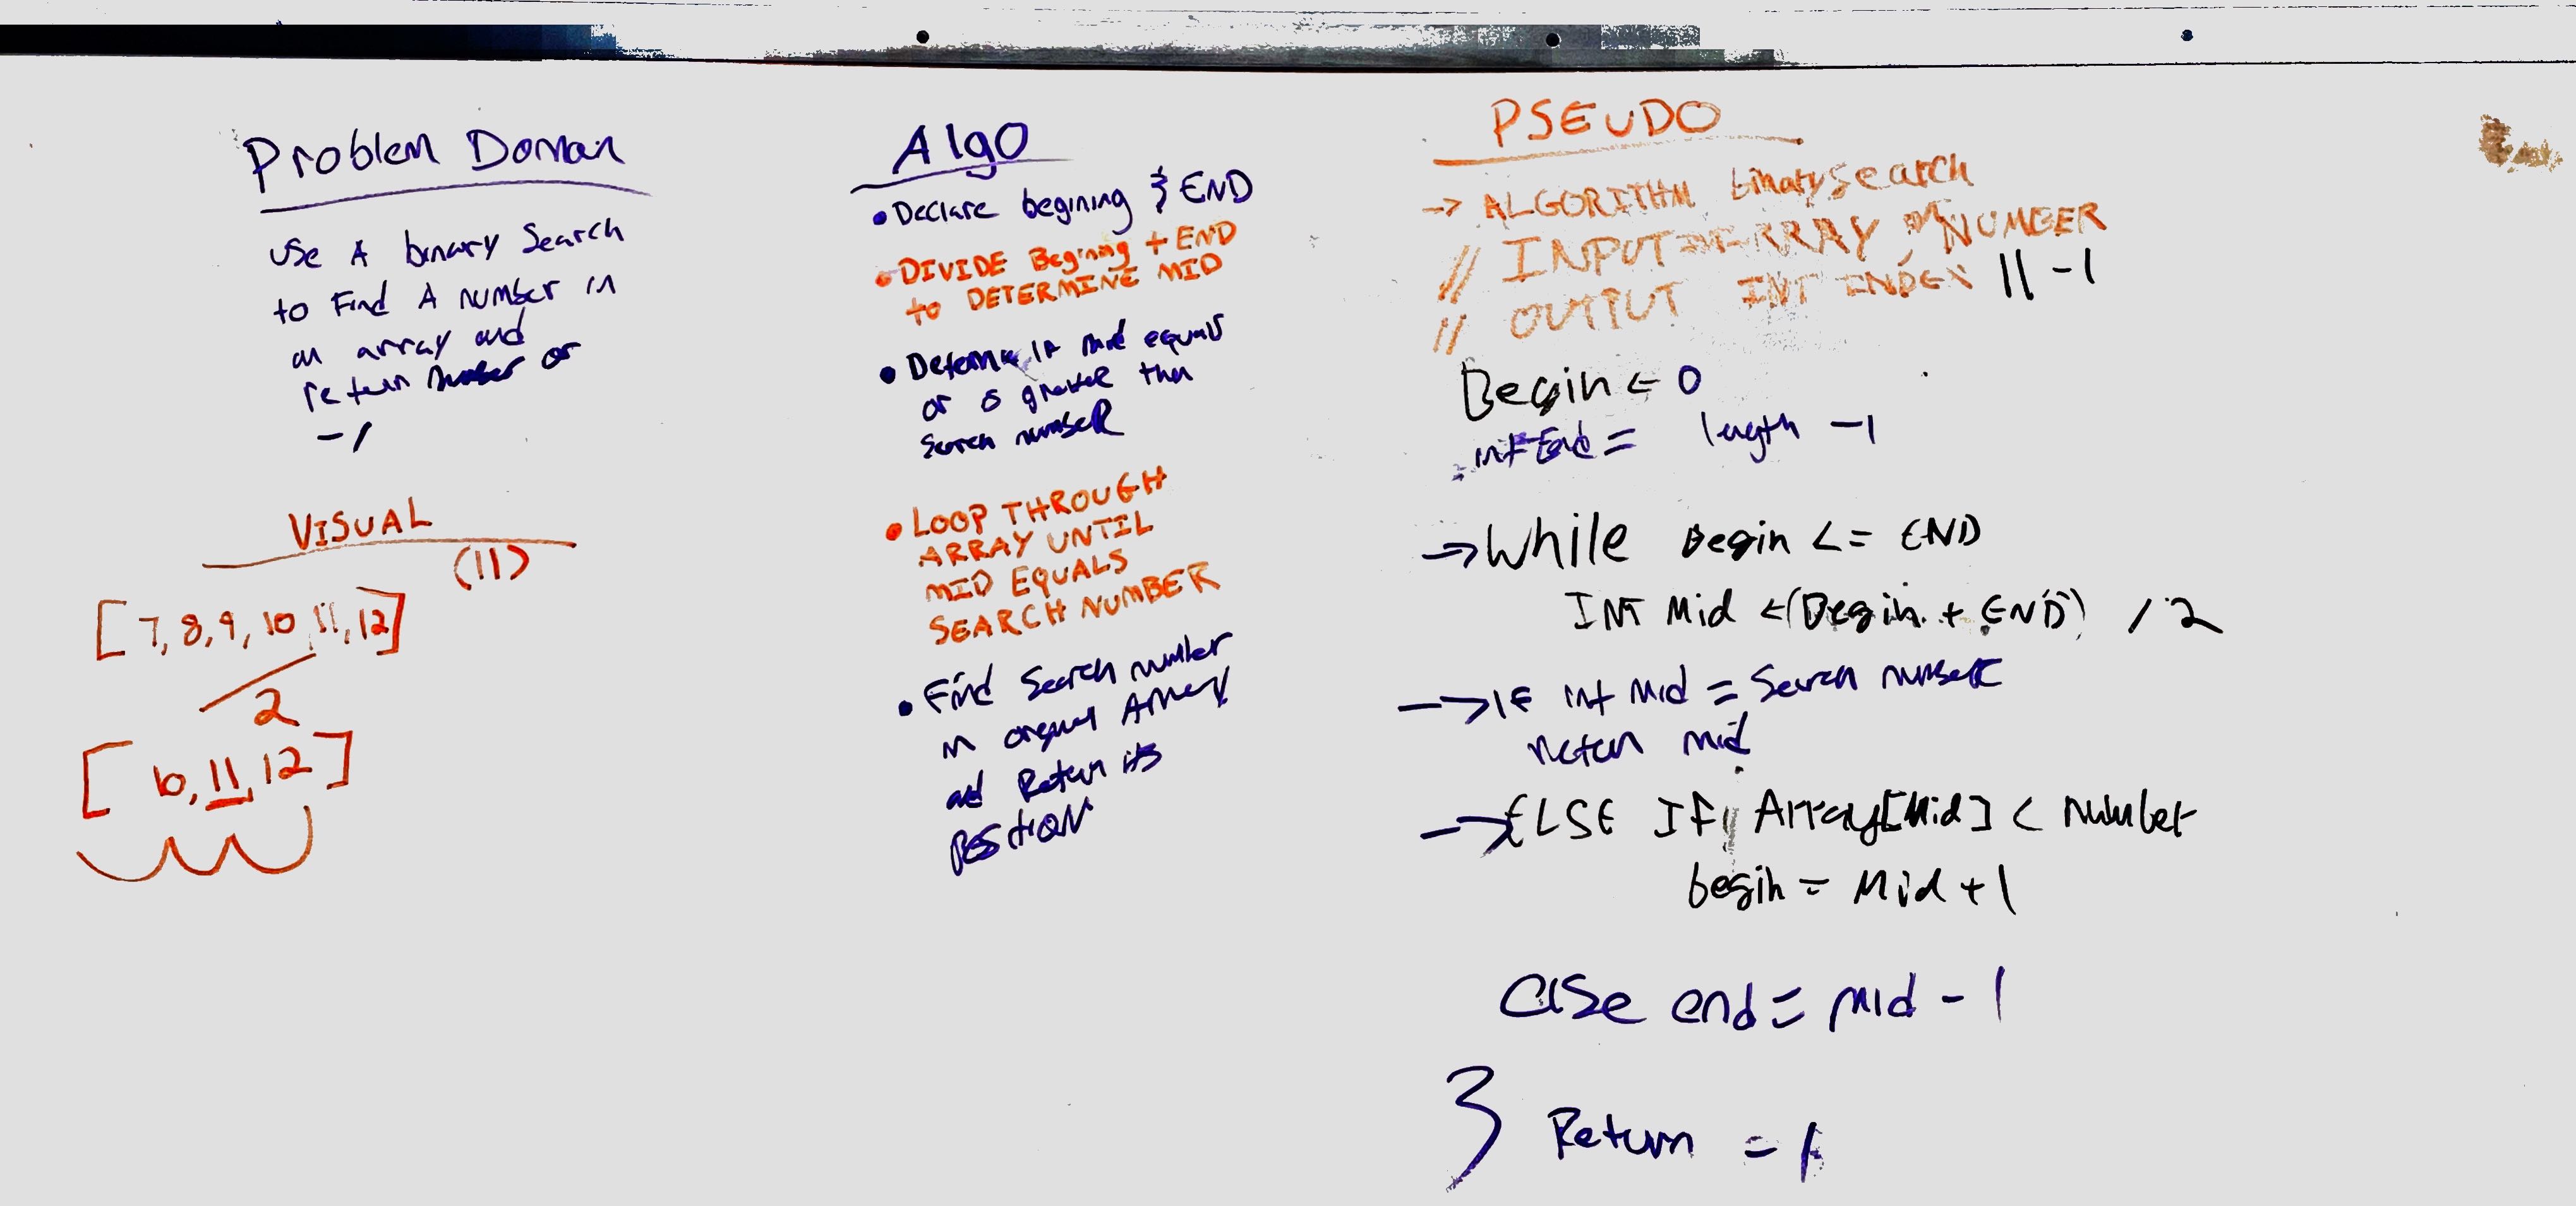 Problem Domain
USE A binary Search
to Find A number in
an array and
return number or
-1
VISUAL
(11)
[7, 8, 9, 10, 11, 12]
2
[10, 11, 12]
Algo
• Declare begining & END
• DIVIDE Begining + END
to DETERMINE MID
• Determine if mid equals
or is greater than
Search number
• LOOP THROUGH
ARRAY UNTIL
MID EQUALS
SEARCH NUMBER
• Find Search number
in original Array
and Return its
POSITION
PSEUDO
-> ALGORITHM binarySearch
// INPUT ARRAY, NUMBER
// OUTPUT INT INDEX || -1
Begin <- 0
int End = length -1
-> While Begin <= END
INT Mid <- (Begin + END) / 2
-> IF int Mid = Search number
return mid
-> ELSE IF Array[Mid] < number
begin = Mid + 1
else end = mid - 1
} Return = 1